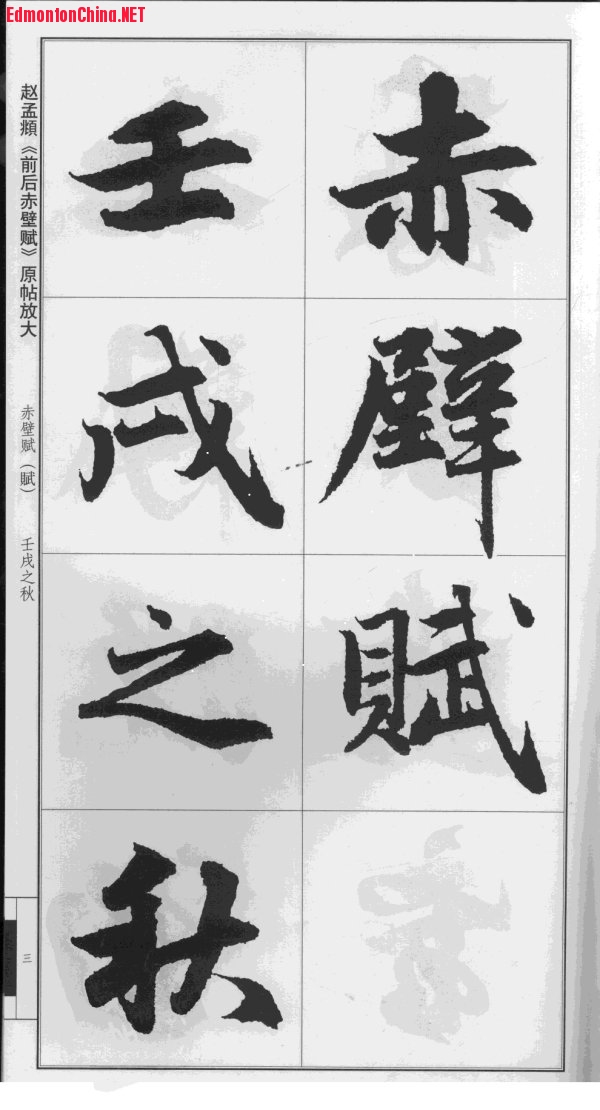 EdmontonChina.NET
赤壁賦
壬戌之秋
赵孟頫《前后赤壁赋》原帖放大
赤壁赋（賦）
壬戌之秋
三